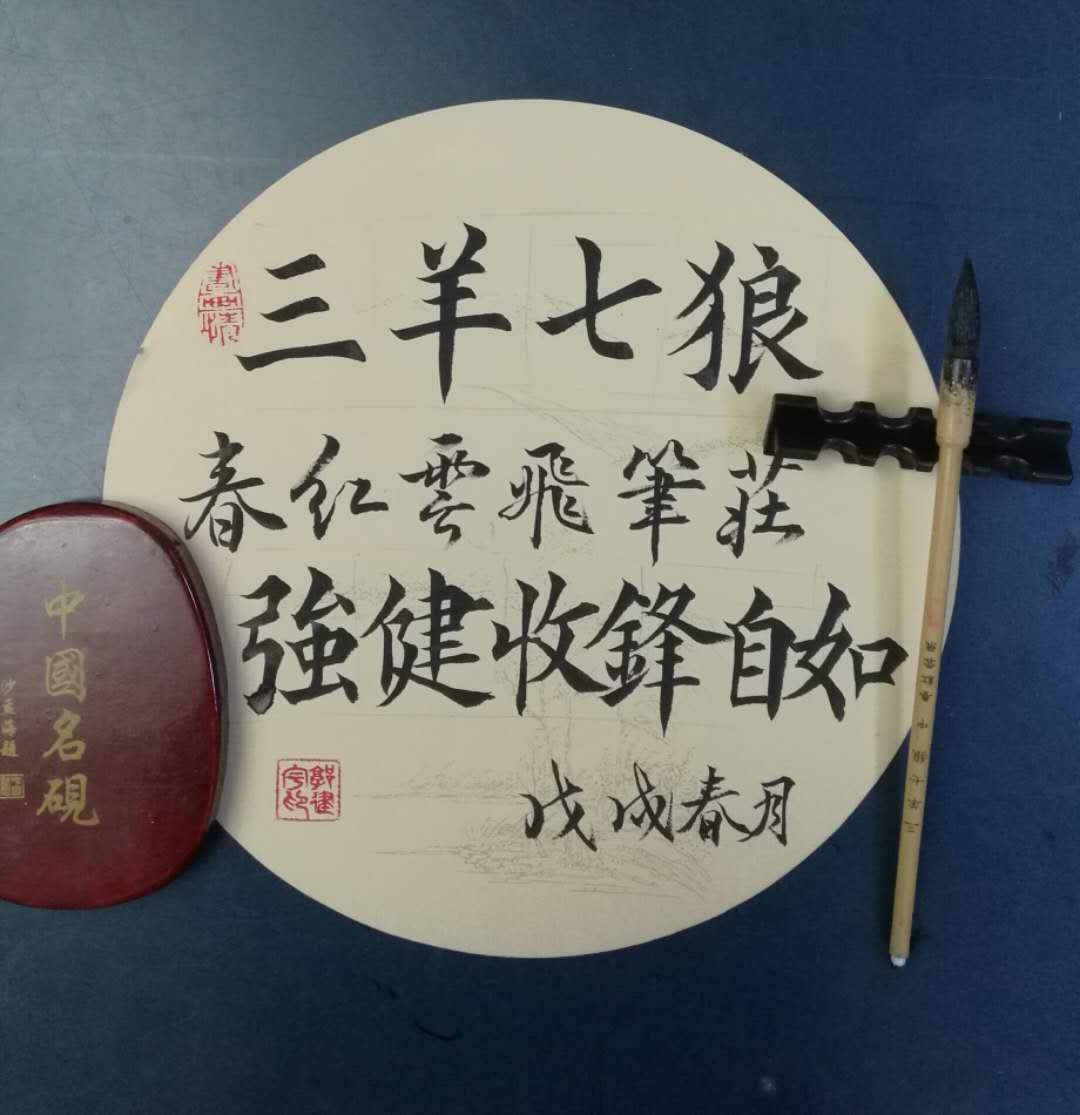 三羊七狼
春红雲飛筆莊
強健收鋒自如
戊戌春月
中國名硯
沙孟海題
三羊七狼 中